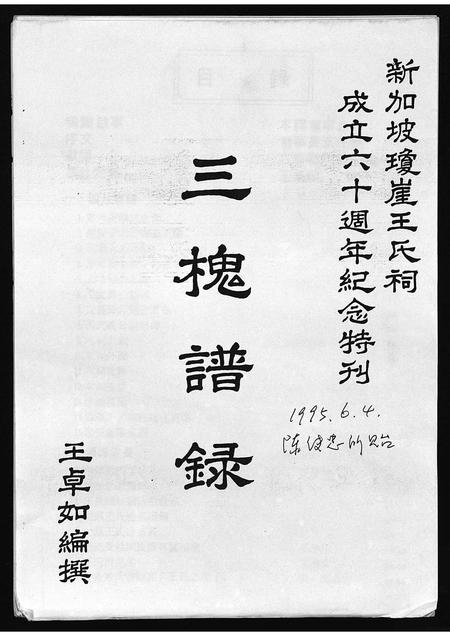 新加坡瓊崖王氏祠
成立六十週年紀念特刊
三槐譜録
1995.6.4.
王卓如編撰